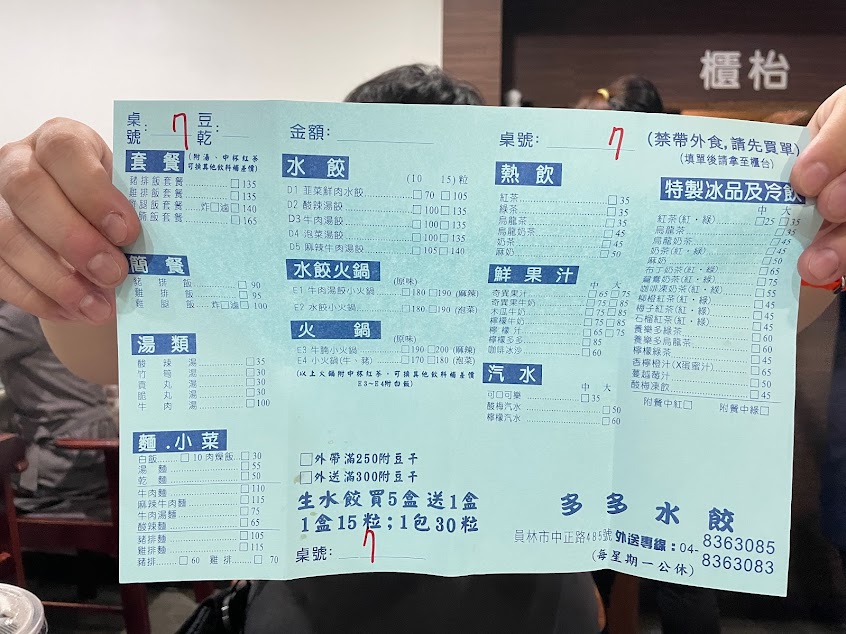 櫃枱
桌號: 7 豆乾:
金額:
桌號: 7
(禁帶外食,請先買單)
(填單後請拿至櫃台)
套餐 (附湯、中杯紅茶可換其他飲料補差價)
豬排飯套餐 □135
雞排飯套餐 □135
雞腿飯套餐 炸□滷□140
牛腩飯套餐 □165
簡餐
豬排飯 □90
雞排飯 □95
雞腿飯 炸□滷□100
湯類
酸辣湯 □35
竹筍湯 □30
貢丸湯 □30
脆丸湯 □30
牛肉湯 □100
麵.小菜
白飯 □10 肉燥飯 □30
湯麵 □55
乾麵 □50
牛肉麵 □110
麻辣牛肉麵 □115
牛肉湯麵 □75
酸辣麵 □65
豬排麵 □105
雞排麵 □115
豬排 □60 雞排 □70
水餃 (10 15)粒
D1 韮菜鮮肉水餃 □70 □105
D2 酸辣湯餃 □100□135
D3 牛肉湯餃 □100□135
D4 泡菜湯餃 □100□135
D5 麻辣牛肉湯餃 □105□140
水餃火鍋 (原味)
E1 牛肉湯餃小火鍋 □180 □190 (麻辣)
E2 水餃小火鍋 □180 □190 (泡菜)
火鍋 (原味)
E3 牛腩小火鍋 □190 □200 (麻辣)
E4 小火鍋(牛、豬) □170 □180 (泡菜)
(以上火鍋附中杯紅茶,可換其他飲料補差價
E3~E4附白飯)
□外帶滿250附豆干
□外送滿300附豆干
生水餃買5盒送1盒
1盒15粒;1包30粒
桌號: 7
熱飲
紅茶 □35
綠茶 □35
烏龍茶 □35
烏龍奶茶 □45
奶茶 □45
麻奶 □50
鮮果汁 中 大
奇異果汁 □65 □75
奇異果牛奶 □75
木瓜牛奶 □75□85
檸檬牛奶 □75□85
檸檬汁 □75
檸檬多多 □85
咖啡冰沙 □60
汽水 中 大
可口可樂 □35
酸梅汽水 □50
檸檬汽水 □60
特製冰品及冷飲
中 大
紅茶(紅・綠) □25 □35
烏龍茶 □35
烏龍奶茶 □45
奶茶(紅・綠) □45
麻奶 □50
布丁奶茶(紅・綠) □65
鴛鴦奶茶(紅・綠) □55
咖啡凍奶茶(紅・綠) □55
檸檬紅茶(紅・綠) □45
梅子紅茶(紅・綠) □45
石榴紅茶(紅・綠) □45
養樂多綠茶 □60
養樂多烏龍茶 □60
檸檬綠茶 □50
香檸橙汁(X蛋蜜汁) □65
蔓越莓汁 □55
酸梅凍飲 □45
附餐中紅□ 附餐中綠□
多多水餃
員林市中正路485號 外送專線:04- 8363085
(每星期一公休) 8363083